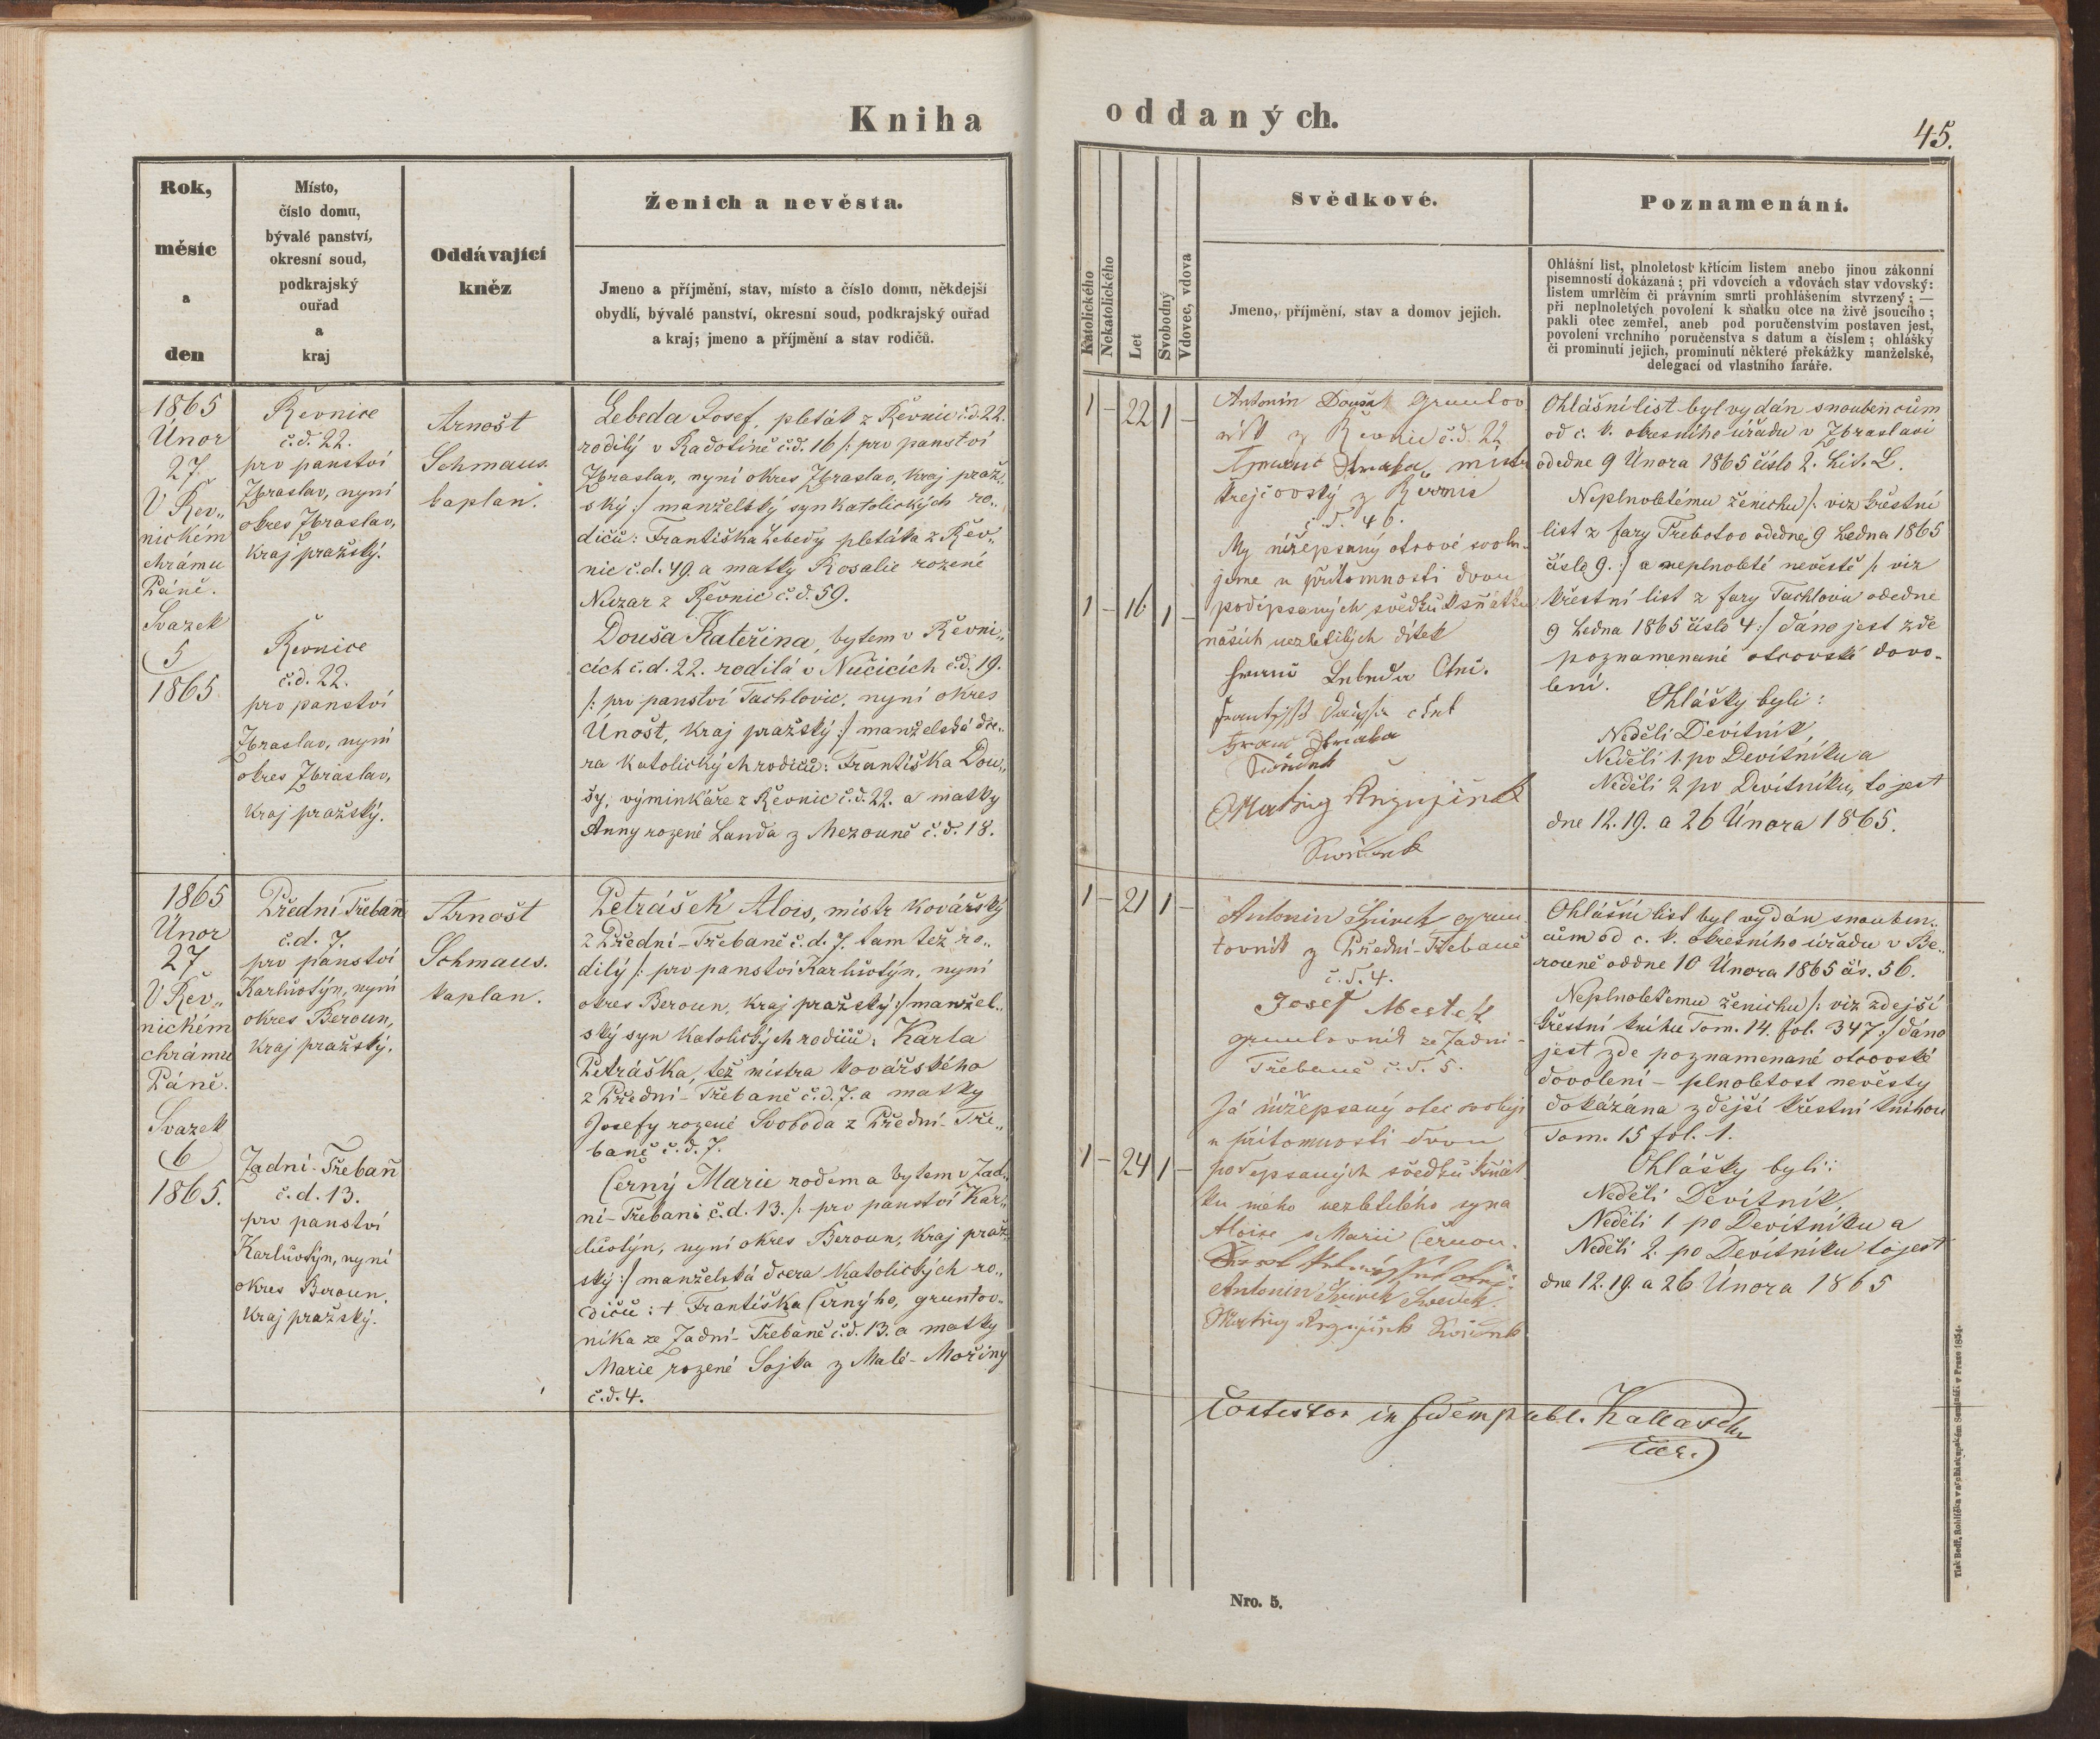 Kniha
oddaných.
45.
Rok,
měsíc
a
den
Místo,
číslo domu,
bývalé panství,
okresní soud,
podkrajský
ouřad
a
kraj
Oddávající
kněz
Ženich a nevěsta.
Jmeno a příjmění, stav, místo a číslo domu, někdejší
obydlí, bývalé panství, okresní soud, podkrajský ouřad
a kraj; jmeno a příjmění a stav rodičů.
Katolického
Nekatolického
Let
Svobodný
Vdovec, vdova
Svědkové.
Jmeno, příjmění, stav a domov jejich.
Poznamenání.
Ohlášní list, plnoletost křtícím listem anebo jinou zákonní
písemností dokázaná; při vdovcích a vdovách stav vdovský:
listem umrlčím či právním smrti prohlášením stvrzený; —
při neplnoletých povolení k sňatku otce na živě jsoucího;
pakli otec zemřel, aneb pod poručenstvím postaven jest,
povolení vrchního poručenstva s datum a číslem; ohlášky
či prominutí jejich, prominutí některé překážky manželské,
delegací od vlastního faráře.
1865
Únor
27
V Řev„
nickém
chrámu
Páně.
Svazek
5
1865
Řevnice
č.d. 22.
pro panství
Zbraslav, nyní
okres Zbraslav,
kraj pražský.
Řevnice
č.d. 22.
pro panství
Zbraslav, nyní
okres Zbraslav,
kraj pražský.
Arnošt
Schmaus.
kaplan.
Lebeda Josef, pleták z Řevnic č.d. 22.
rodilý v Radotíně č.d. 16 /: pro panství
Zbraslav, nyní okres Zbraslav, kraj praž„
ský :/ manželský syn katolických ro„
dičů: Františka Lebedy pletáka z Řev„
nic č.d. 49. a matky Rosalie rozené
Nuzar z Řevnic č.d. 59.
Douša Kateřina, bytem v Řevni„
cích č.d. 22. rodilá v Nučicích č.d. 19.
/: pro panství Tachlovic, nyní okres
Únošt, kraj pražský :/ manželská dce„
ra katolických rodičů: Františka Dou„
šy, výminkáře z Řevnic č.d. 22. a matky
Anny rozené Landa z Mezouně č.d. 18.
1 – 22 1 –
1 – 16 1 –
Antonín Douša gruntov
ník z Řevnic č.d. 22
Straka, mistr
krejčovský z Řevnic
č.d. 46.
My nížepsaný otcové svolu-
jeme u přítomnosti dvou
podepsaných svědků k sňátku
našich nezletilých dítek
Lebeda Otec.
Straka
Ohlášní list byl vydán snoubencům
od c. k. okresního úřadu v Zbraslavi
odedne 9 Února 1865 číslo 2. Lit. L.
Neplnoletému ženichu /: viz křestní
list z fary Třebotov odedne 9 Ledna 1865
číslo 9. :/ a neplnoleté nevěstě /: viz
křestní list z fary Tachlovic odedne
9 Ledna 1865 číslo 4 :/ dáno jest zde
poznamenané otcovské dovo-
lení.
Ohlášky byli:
Neděli Devítník,
Neděli 1. po Devítníku a
Neděli 2 po Devítníku, to jest
dne 12. 19. a 26 Února 1865.
1865
Únor
27
V Řev„
nickém
chrámu
Páně.
Svazek
6
1865.
Přední Třebaň
č.d. 7.
pro panství
Karlštýn, nyní
okres Beroun,
kraj pražský.
Zadní-Třebaň
č.d. 13.
pro panství
Karlštýn, nyní
okres Beroun,
kraj pražský.
Arnošt
Schmaus.
kaplan.
Petrášek Alois, mistr kovářský
z Přední-Třebaně č.d. 7. tam též ro„
dilý /: pro panství Karlštýn, nyní
okres Beroun, kraj pražský :/ manžel„
ský syn katolických rodičů: Karla
Petráška, též mistra kovářského
z Přední-Třebaně č.d. 7. a matky
Josefy rozené Svoboda z Přední-Tře„
baně č.d. 7.
Černý Marie rodem a bytem v Zad„
ní-Třebani č.d. 13. /: pro panství Kar„
lštýn, nyní okres Beroun, kraj praž„
ský :/ manželská dcera katolických ro„
dičů: † Františka Černýho, gruntov„
níka ze Zadní-Třebaně č.d. 13. a matky
Marie rozené Sojka z Malé-Mořiny
č.d. 4.
1 – 21 1 –
1 – 24 1 –
Antonín grun
tovník z Přední-Třebaně
č.d. 4.
Josef Mestek
gruntovník ze Zadní-
Třebaně č.d. 5.
Já nížepsaný otec svoluji
u přítomnosti dvou
podepsaných svědků k sňát
ku mého nezletilého syna
Aloise s Marií Černou.
Antonin Swedek.
Ohlášní list byl vydán snouben„
cům od c. k. okresního úřadu v Be„
rouně oddne 10 Února 1865 čís. 56.
Neplnoletému ženichu /: viz zdejší
křestní knihu Tom. 14. fol. 347 :/ dáno
jest zde poznamenané otcovské
dovolení – plnoletost nevěsty
dokázána zdejší křestní knihou
Tom. 15 fol. 1.
Ohlášky byli:
Neděli Devítník,
Neděli 1 po Devítníku a
Neděli 2. po Devítníku to jest
dne 12. 19. a 26 Února 1865
in fidem publ.
Nro. 5.
Tisk Bedř. Rohlíčka v arcibiskupském Semináři v Praze 1854.